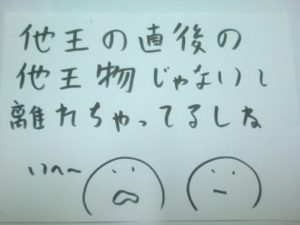 他王の直後の
他王物じゃないし
離れちゃってるしね
いへ～